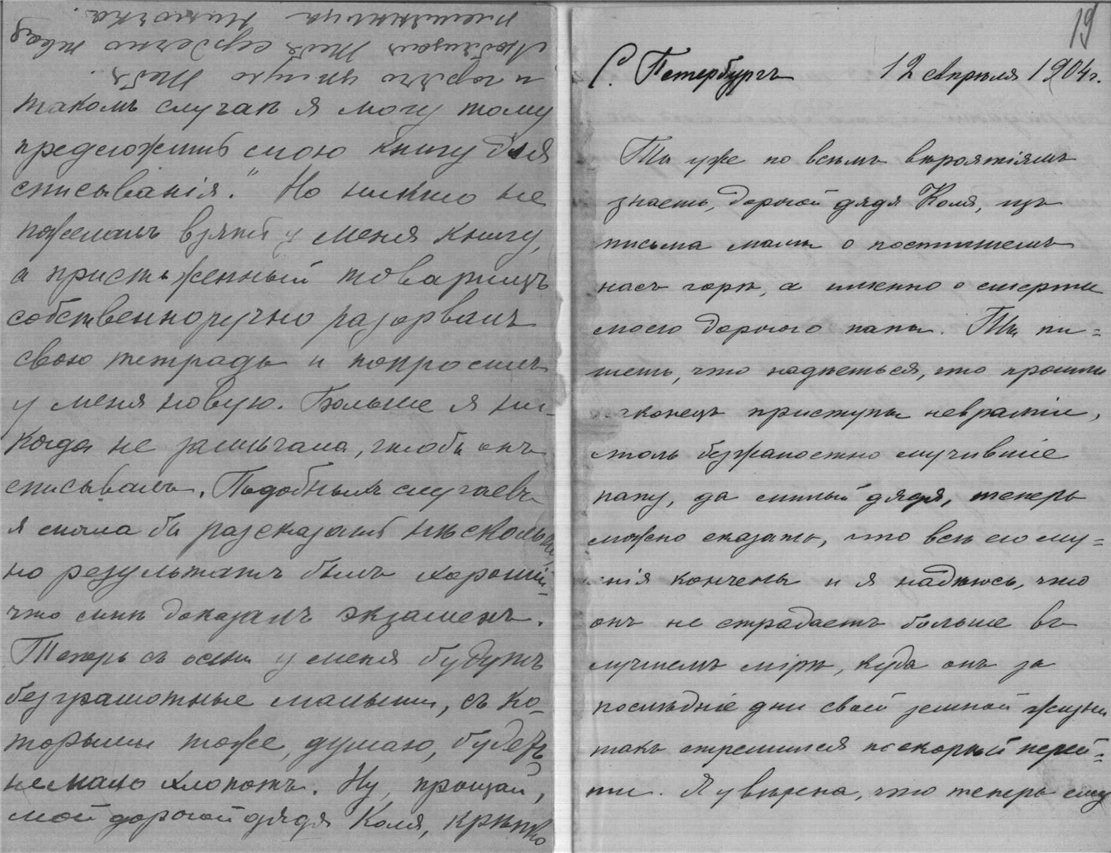 такомъ случаѣ я могу тому
предложить мою книгу для
списыванія." Но никто не
пожелалъ взять у меня книгу,
а пристыженный товарищъ
собственноручно разорвалъ
свою тетрадь и попросилъ
у меня новую. Больше я ни-
когда не замѣчала, чтобы онъ
списывалъ. Подобныхъ случаевъ
я могла бы разсказать нѣсколько,
но результатъ былъ хорошій,
что мнѣ доказалъ экзаменъ.
Теперь съ осени у меня будутъ
безграмотные малыши, съ ко-
торыми тоже, думаю, будетъ
немало хлопотъ. Ну, прощай,
мой дорогой дядя Коля, крѣпко
и горячо цѣлую Тебя.
Любящая Тебя сердечно твоя
племянница Ниночка.
19
С. Петербургъ 12 апрѣля 1904 г.
Ты уже по всѣмъ вѣроятіямъ
знаешь, дорогой дядя Коля, изъ
письма мамы о постигшемъ
насъ горѣ, а именно о смерти
моего дорогого папы. Ты пи=
шешь, что надѣешься, что прошли
конецъ приступы невралгіи,
столь безжалостно мучившіе
папу, да милый дядя, теперь
можно сказать, что всѣ его му=
нія кончены и я надѣюсь, что
онъ не страдаетъ больше въ
лучшемъ мірѣ, куда онъ за
послѣдніе дни своей земной жизни
такъ стремился поскорѣй перей=
ти. Я увѣрена, что теперь ему